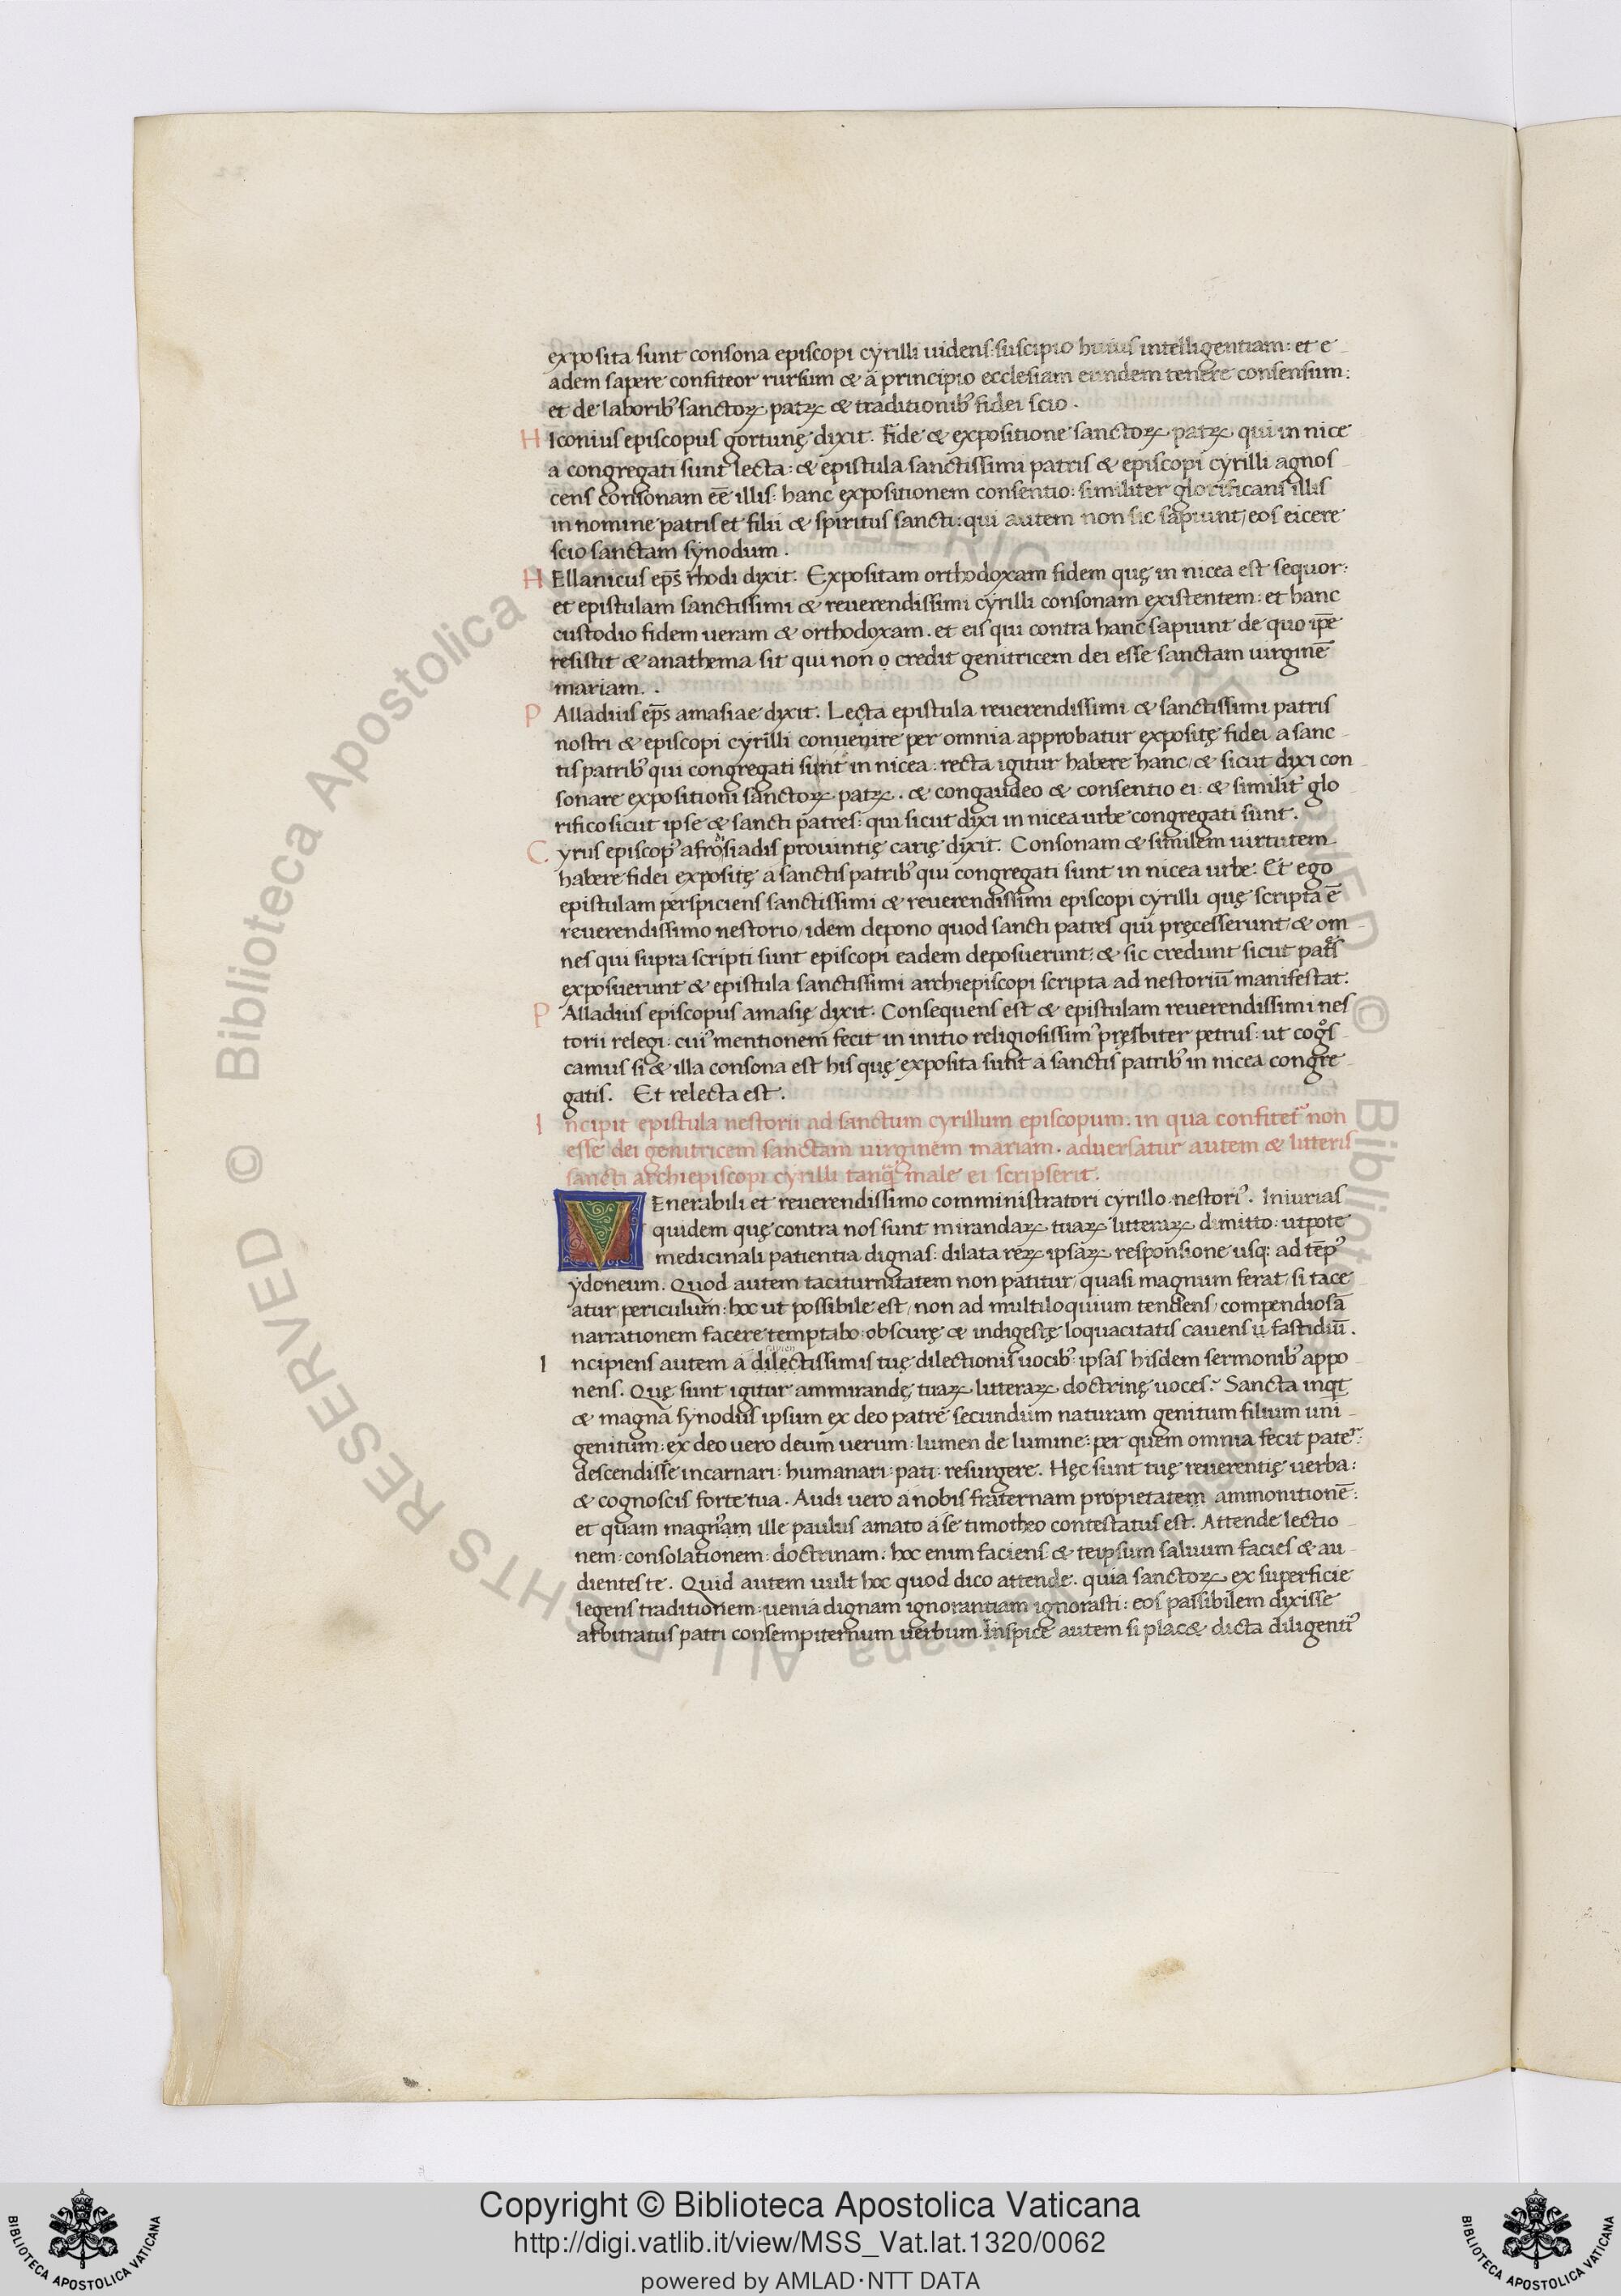 exposita sunt consona episcopi cyrilli uidens: suscipio huius intelligentiam: et e
adem sapere confiteor rursum & a principio ecclesiam eundem tenere consensum:
et de laborib᾽ sanctoꝝ patꝝ & traditionib᾽ fidei scio.
H Iconius episcopus gortunę dixit. Fide & expositione sanctoꝝ patꝝ qui in nice
a congregati sunt lecta: & epistula sanctissimi patris & episcopi cyrilli agnos
cens consonam eē illis: hanc expositionem consentio: similiter glorificans illis
in nomine patris et filii & spiritus sancti: qui autem non sic sapiunt, eos eicere
scio sanctam synodum.
H Ellanicus ep̄s rhodi dixit. Expositam orthodoxam fidem quę in nicea est sequor:
et epistulam sanctissimi & reuerendissimi cyrilli consonam existentem: et hanc
custodio fidem ueram & orthodoxam. et eis qui contra hanc sapiunt de quo ip̄e
resistit & anathema sit qui non credit genitricem dei esse sanctam uirginē
mariam.
P Alladius ep̄s amasiae dixit. Lecta epistula reuerendissimi & sanctissimi patris
nostri & episcopi cyrilli conuenire per omnia approbatur expositę fidei a sanc
tis patrib᾽ qui congregati sunt in nicea: recta igitur habere hanc, & sicut dixi con
sonare expositioni sanctoꝝ patꝝ. & congaudeo & consentio ei: & similit᾽ glo
rifico sicut ipse & sancti patres: qui sicut dixi in nicea urbe congregati sunt.
C yrus episcop᾽ afrosiadis prouintię carię dixit. Consonam & similem uirtutem
habere fidei expositę a sanctis patrib᾽ qui congregati sunt in nicea urbe: Et ego
epistulam perspiciens sanctissimi & reuerendissimi episcopi cyrilli quę scripta ē
reuerendissimo nestorio, idem depono quod sancti patres qui pręcesserunt, & om
nes qui supra scripti sunt episcopi eadem deposuerunt: & sic credunt sicut patrs
exposuerunt & epistula sanctissimi archiepiscopi scripta ad nestoriū manifestat.
P Alladius episcopus amasię dixit. Consequens est & epistulam reuerendissimi nes
torii relegi: cui᾽ mentionem fecit in initio religiosissim᾽ pręsbiter petrus: ut cogos
camus si & illa consona est his quę exposita sunt a sanctis patrib᾽ in nicea congre
gatis. Et relecta est.
I ncipit epistula nestorii ad sanctum cyrillum episcopum. in qua confitet᾽ non
esse dei genitricem sanctam uirginem mariam. aduersatur autem & litteris
sancti archiepiscopi cyrilli tanq̄ male ei scripserit.
V Enerabili et reuerendissimo comministratori cyrillo nestori᾽. Iniurias
quidem quę contra nos sunt mirandaꝝ tuaꝝ litteraꝝ dimitto: utpote
medicinali patientia dignas: dilata reꝝ ipsaꝝ responsione usq: ad tēp᾽
ydoneum. Quod autem taciturnitatem non patitur, quasi magnum ferat, si tace
atur, periculum: hoc ut possibile est, non ad multiloquium tendens, compendiosā
narrationem facere temptabo: obscurę & indigestę loquacitatis cauens fastidiū.
I ncipiens autem a dilectissimis tuę dilectionis uocib᾽ ipsas hisdem sermonib᾽ appo
nens. Quę sunt igitur ammirandę tuaꝝ litteraꝝ doctrinę uoces? Sancta inqt
& magna synodus ipsum ex deo patre secundum naturam genitum filium uni
genitum: ex deo uero deum uerum: lumen de lumine: per quem omnia fecit pater:
descendisse incarnari: humanari: pati: resurgere. Hęc sunt tuę reuerentię uerba:
& cognoscis forte tua. Audi uero a nobis fraternam propietatem ammonitionē:
et quam magnam ille paulus amato a se timotheo contestatus est. Attende lectio
nem: consolationem: doctrinam. hoc enim faciens & teipsum saluum facies & au
dientes te. Quid autem uult hoc quod dico attende. quia sanctoꝝ ex superficie
legens traditionem: uenia dignam ignorantiam ignorasti: eos passibilem dixisse
arbitratus patri consempiternum uerbum. Inspice autem si plac& dicta diligenti᾽
Copyright © Biblioteca Apostolica Vaticana
http://digi.vatlib.it/view/MSS_Vat.lat.1320/0062
powered by AMLAD·NTT DATA
BIBLIOTECA APOSTOLICA VATICANA
BIBLIOTECA APOSTOLICA VATICANA